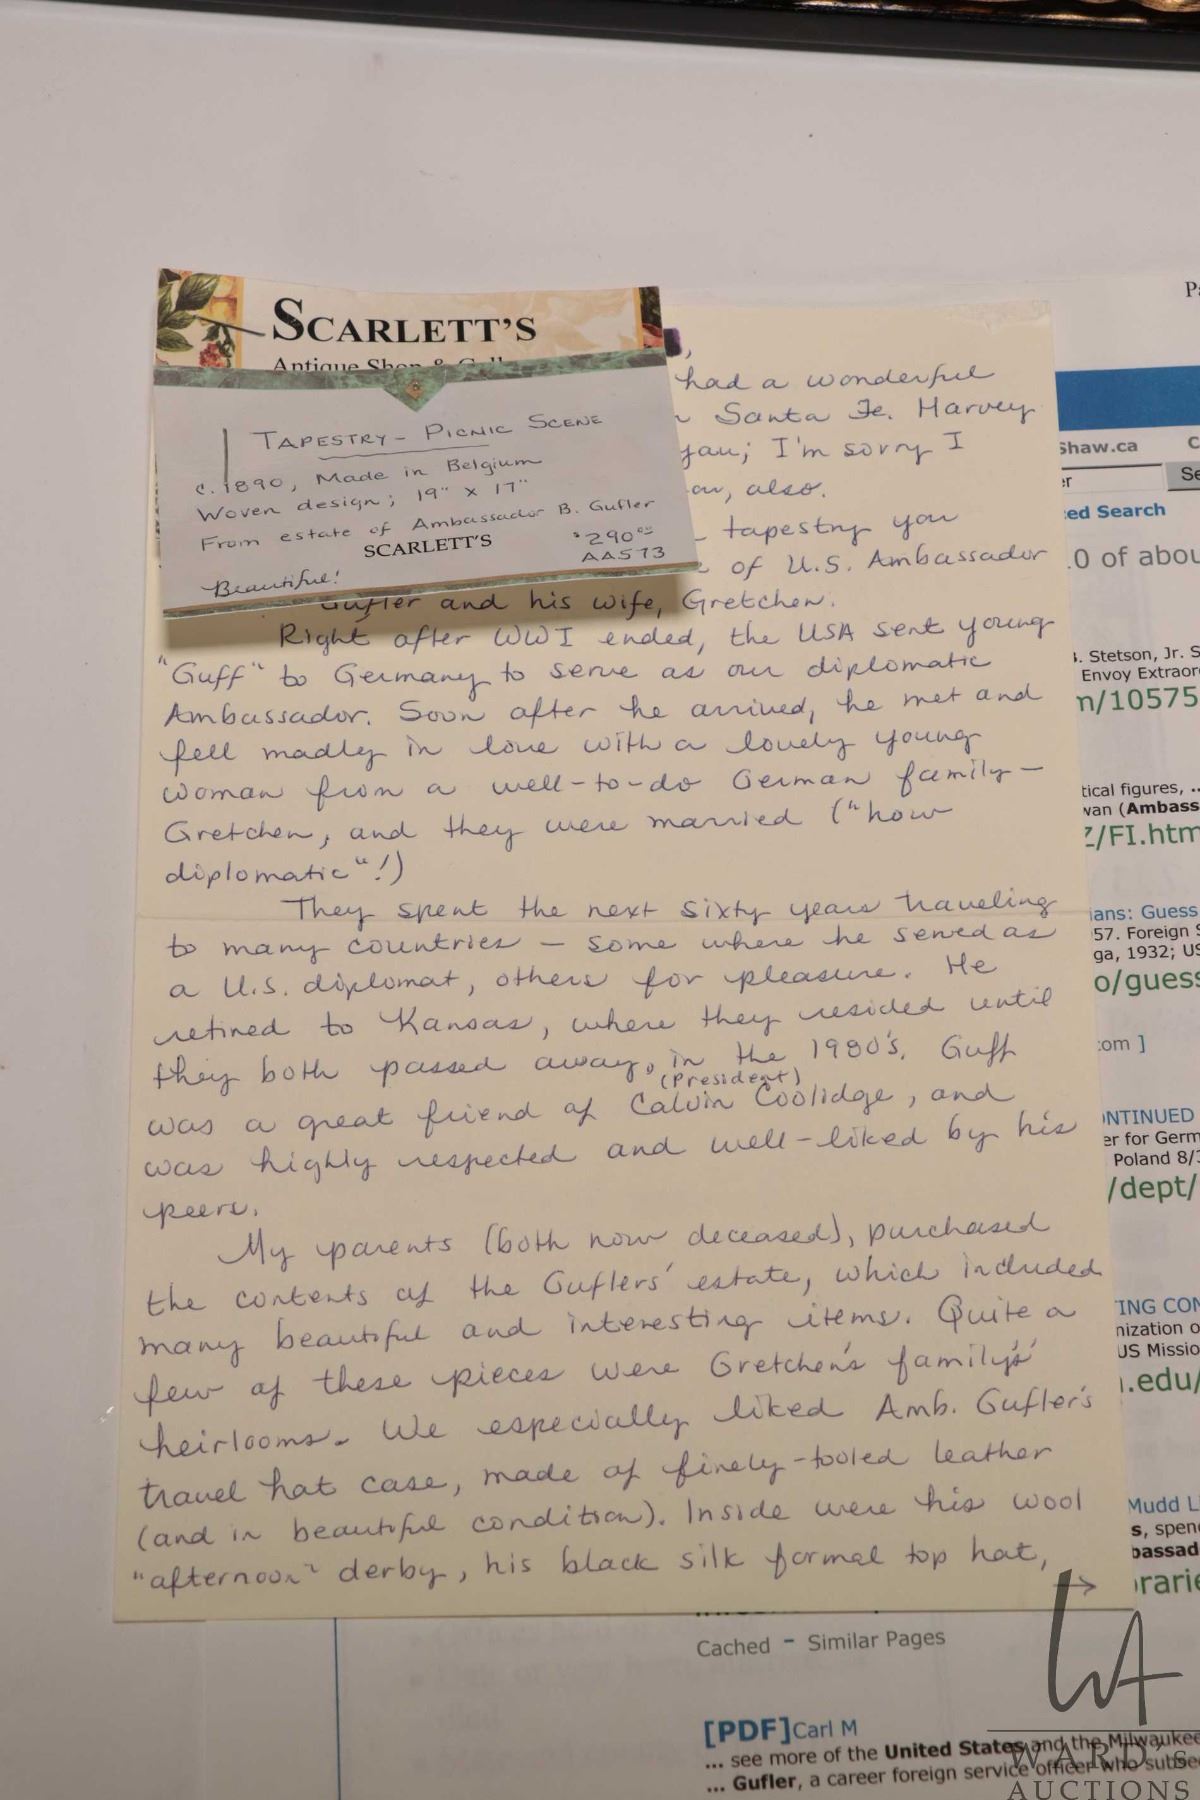 SCARLETT'S
Antique Shop &
TAPESTRY – PICNIC SCENE
c. 1890, Made in Belgium
Woven design; 19" x 17"
From estate of Ambassador B. Gufler
SCARLETT'S
$290.00
AA573
Beautiful!
had a wonderful
Santa Fe. Harvey
you; I'm sorry I
also.
tapestry you
of U.S. Ambassador
Gufler and his wife, Gretchen.
Right after WWI ended, the USA sent young
"Guff" to Germany to serve as our diplomatic
Ambassador. Soon after he arrived, he met and
fell madly in love with a lovely young
woman from a well-to-do German family –
Gretchen, and they were married ("how
diplomatic"!)
They spent the next sixty years traveling
to many countries – some where he served as
a U.S. diplomat, others for pleasure. He
retired to Kansas, where they resided until
they both passed away, in the 1980's. Guff
(President)
was a great friend of Calvin Coolidge, and
was highly respected and well-liked by his
peers.
My parents (both now deceased), purchased
the contents of the Guflers' estate, which included
many beautiful and interesting items. Quite a
few of these pieces were Gretchen's family's'
heirlooms. We especially liked Amb. Gufler's
travel hat case, made of finely-tooled leather
(and in beautiful condition). Inside were his wool
"afternoon" derby, his black silk formal top hat,
→
Shaw.ca
ed Search
.0 of abou
. Stetson, Jr. S
Envoy Extraor
m/10575
tical figures, ..
wan (Ambass
Z/FI.htm
ans: Guess
57. Foreign S
ga, 1932; US
o/guess
com ]
ONTINUED
er for Germ
Poland 8/3
/dept/
TING CON
nization o
US Missio
.edu/
Mudd Li
s, spen
bassad
rarie
Cached - Similar Pages
[PDF] Carl M
... see more of the United States and the Milwaukee
... Gufler, a career foreign service officer who subse
WARD'S
AUCTIONS